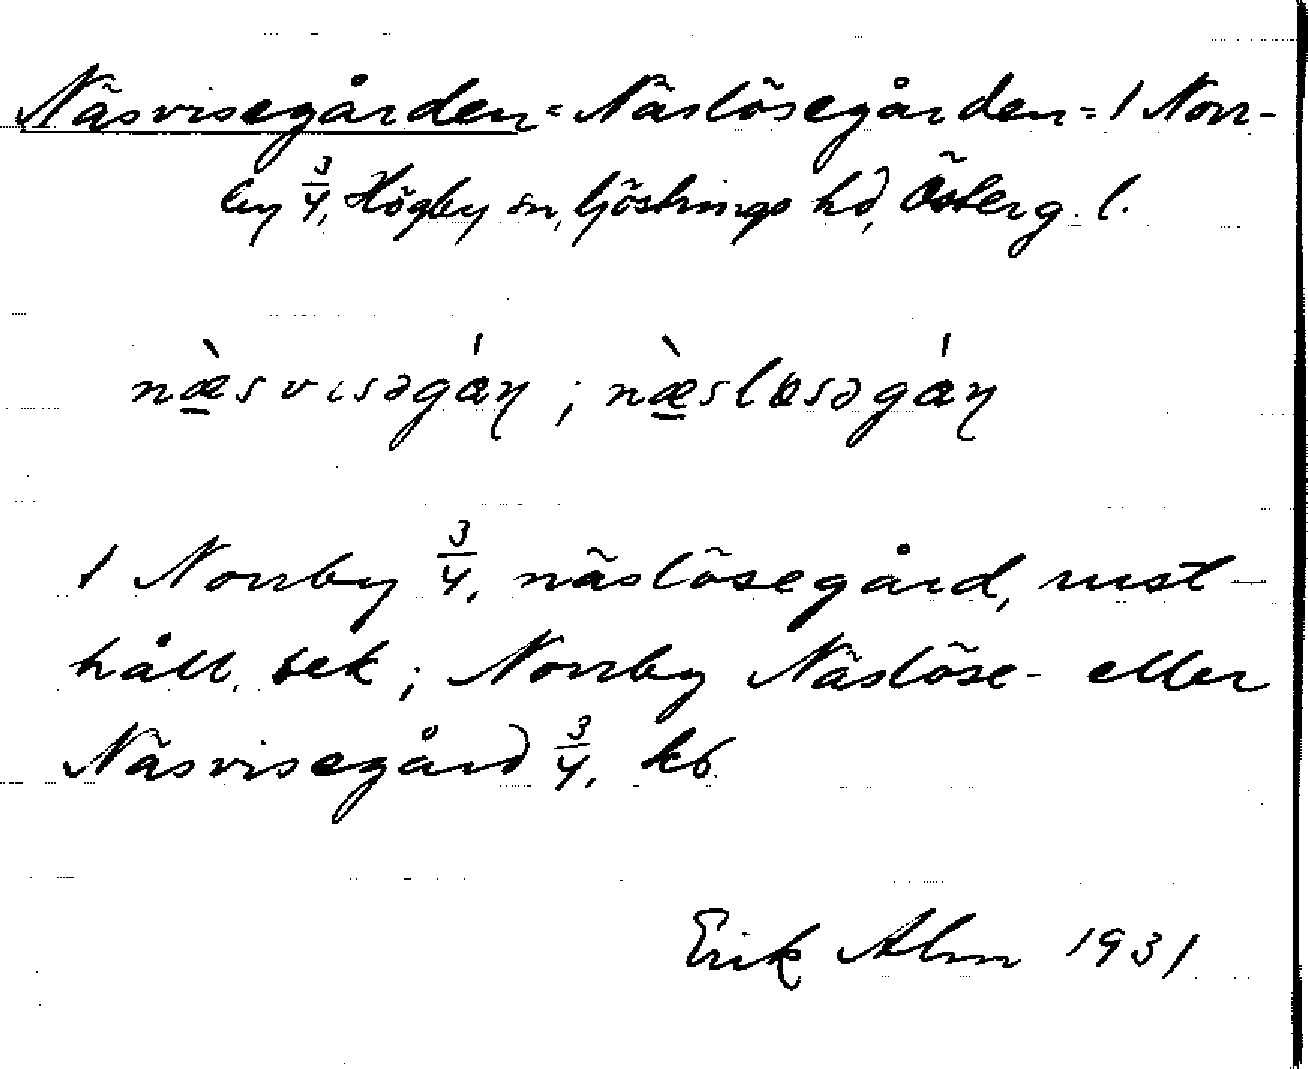 Näsvisegården = Näslösegården = 1 Norr-
by 3/4, Högby sn, Göstrings hd, Österg. l.
næ̀svisəgáɳ ; næ̀slɵsəgáɳ
1 Norrby 3/4, näslösegård, rust-
håll, sek; Norrby Näslöse- eller
Näsvisegård 3/4, kb.
Erik Alm 1931